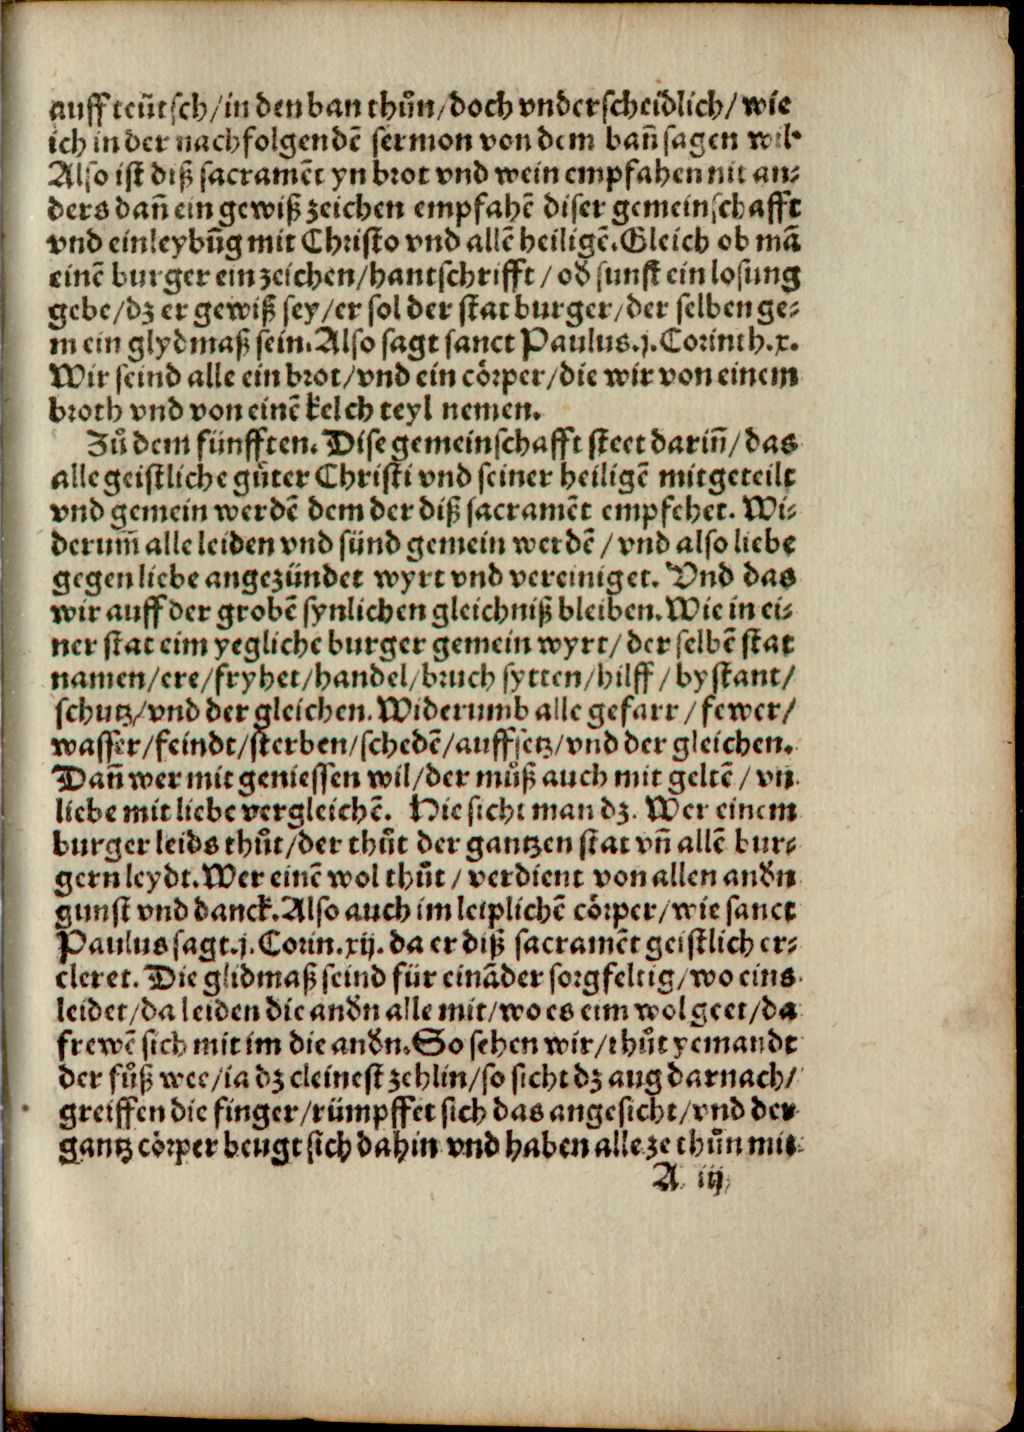 auff teütsch/in den ban thůn/doch vnderscheidlich/wie
ich in der nachfolgendē sermon von dem bañ sagen wil.
Also ist diß sacramēt yn brot vnd wein empfahen nit an⸗
ders dañ ein gewiß zeichen empfahē diser gemeinschafft
vnd einleybūg mit Christo vnd allē heiligē. Gleich ob mā
einē burger ein zeichen/hantschrifft/od̕ sunst ein losung
gebe/dz er gewiß sey/er sol der stat burger/der selben ge⸗
mein glydmaß sein. Also sagt sanct Paulus.j. Corinth.x.
Wir seind alle ein brot/vnd ein cörper/die wir von einem
broth vnd von einē kelch teyl nemen.
Zů dem fünfften. Dise gemeinschafft steet dariñ/das
alle geistliche güter Christi vnd seiner heiligē mitgeteilt
vnd gemein werdē dem der diß sacramēt empfehet. Wi⸗
derum̄ alle leiden vnd sünd gemein werdē/vnd also liebe
gegen liebe angezündet wyrt vnd vereiniget. Vnd das
wir auff der grobē synlichen gleichniß bleiben. Wie in ei⸗
ner stat eim yegliche burger gemein wyrt/der selbē stat
namen/ere/fryhet/handel/bruch sytten/hilff/bystant/
schutz/vnd der gleichen. Widerumb alle gefarr/fewer/
wasser/feindt/sterben/schedē/auffsetz/vnd der gleichen.
Dañ wer mit geniessen wil/der můß auch mit geltē/vñ
liebe mit liebe vergleichē. Hie sicht man dz. Wer einem
burger leids thůt/der thůt der gantzen stat vñ allē bur⸗
gern leydt. Wer einē wol thůt/verdient von allen and̕n
gunst vnd danck. Also auch im leiplichē cörper/wie sanct
Paulus sagt.j. Corin.xij. da er diß sacramēt geistlich er⸗
cleret. Die glidmaß seind für eināder sorgfeltig/wo eins
leidet/da leiden die and̕n alle mit/wo es eim wol geet/da
frewē sich mit im die and̕n. So sehen wir/thůt yemandt
der fůß wee/ia dz cleinest zehlin/so sicht dz aug darnach/
greiffen die finger/rümpffet sich das angesicht/vnd der
gantz cörper beugt sich dahin vnd haben alle ze thůn mit
A iij